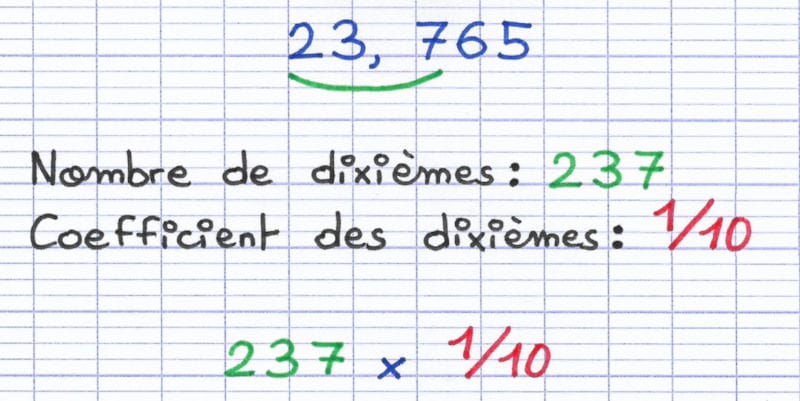 23, 765
Nombre de dixièmes : 237
Coefficient des dixièmes : 1/10
237 x 1/10